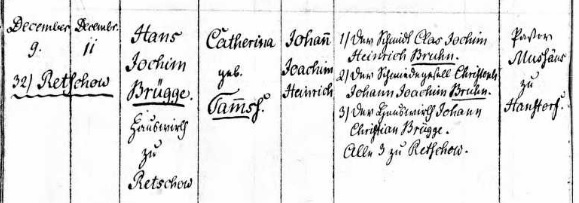 December
9.
32) Retschow
Decembr.
11
Hans
Jochim
Brügge.
Hauswirth
zu
Retschow
Catherina
geb.
Tamsß.
Johañ
Joachim
Heinrich
1) Der Schmidt Clas Jochim
Heinrich Bruhn.
2) Der Schmiedegesell Christoph
Johann Joachim Bruhn.
3) Der Hauswirth Johann
Christian Brügge.
Alle 3 zu Retschow.
Pastor
Mushäus
zu
Hanstorf.